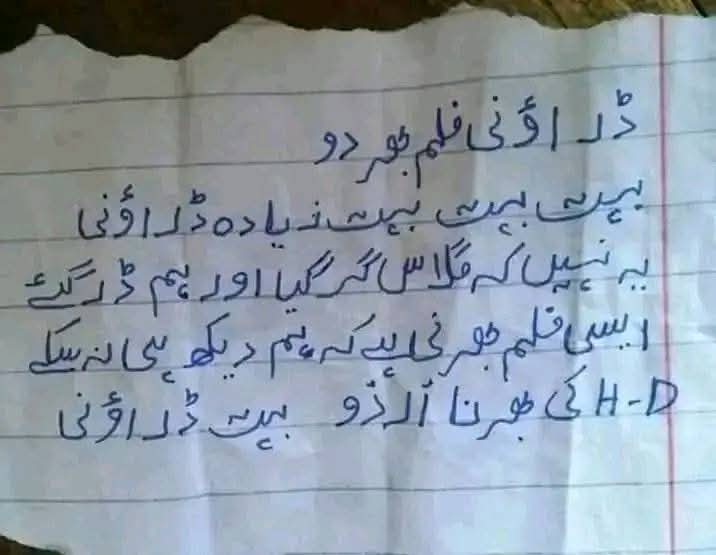 ڈراؤنی فلم بھر دو
بہت بہت بہت زیادہ ڈراؤنی
یہ نہیں کہ گلاس گر گیا اور ہم ڈر گئے
ایسی فلم بھرنی ہے کہ ہم دیکھ ہی نہ سکے
H-D کی بھرنا اُردُو بہت ڈراؤنی